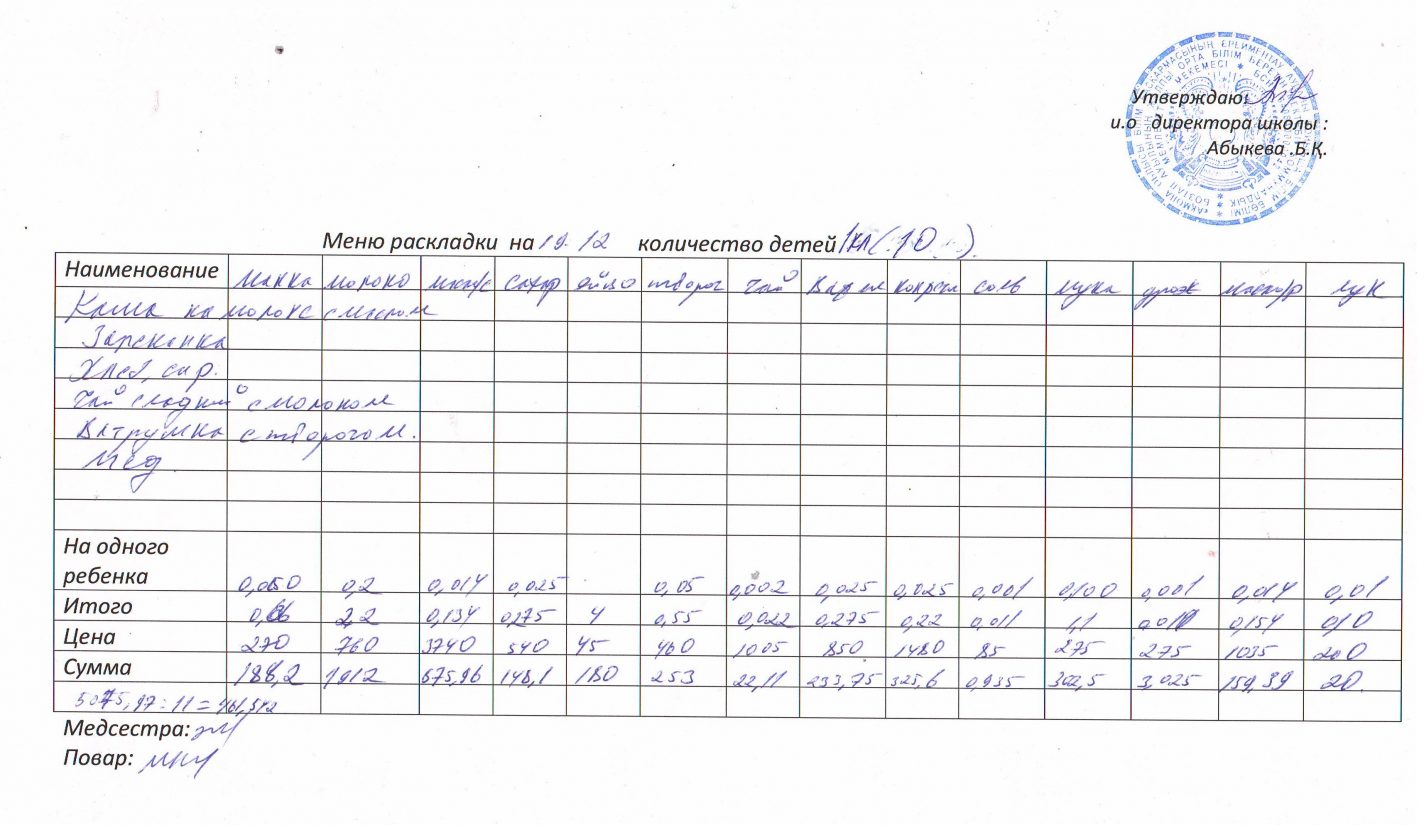 Утверждаю:
и.о директора школы :
Абыкева .Б.Қ.
Меню раскладки на 19. 12 количество детей 1кл(.10 . .).
Наименование манка молоко сахар яйцо творог чай соль мука дрож лук
Каша на молоке с маслом
Запеканка
Хлеб, сыр.
Чай сладкий с молоком
Ватрушка с творогом.
Мёд.
На одного
ребенка 0,2 0,014 0,025 0,05 0,002 0,025 0,025 0,001 0,100 0,001 0,014 0,01
Итого 2,2 0,134 0,275 4 0,55 0,022 0,275 0,22 0,011 1,1 0,154 0,10
Цена 270 760 3740 540 45 460 1005 850 1480 85 275 275 1035 200
Сумма 188,2 1912 675,96 148,1 180 253 22,11 233,75 325,6 0,935 302,5 3,025 159,39 20.
5075,97 : 11 =
Медсестра:
Повар: